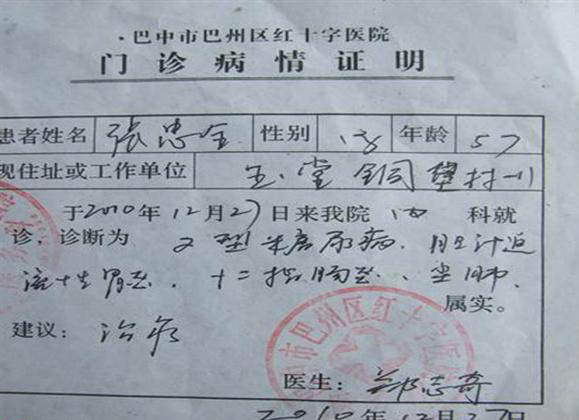 巴中市巴州区红十字医院
门诊病情证明
患者姓名 张忠全 性别 年龄 57
现住址或工作单位 玉堂 铜堡村
于2010年12月27日来我院 内 科就
诊，诊断为 2型糖尿病、胆汁返
流性胃炎、十二指肠炎、
属实。
建议：治疗
医生：郑志奇
2010年12月27日
市巴州区红十字医院